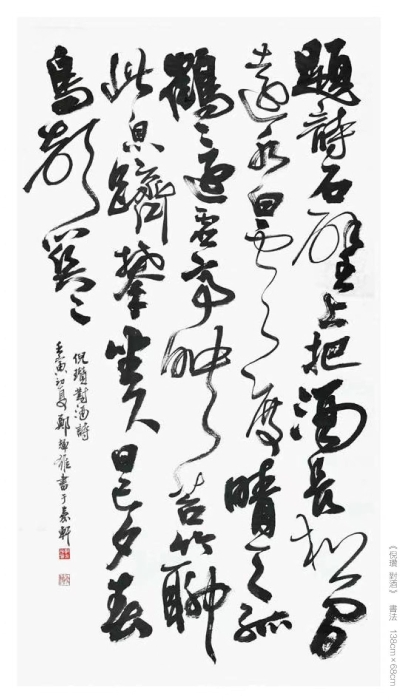 題詩石壁上把酒長松間
遠水白雲度晴天孤
鶴還虛亭映苔竹聊
此息躋攀坐久日已夕春
鳥聲關々
倪瓚對酒詩
壬寅初夏鄭 雅書于 軒
《倪瓚 對酒》 書法 138cm×68cm